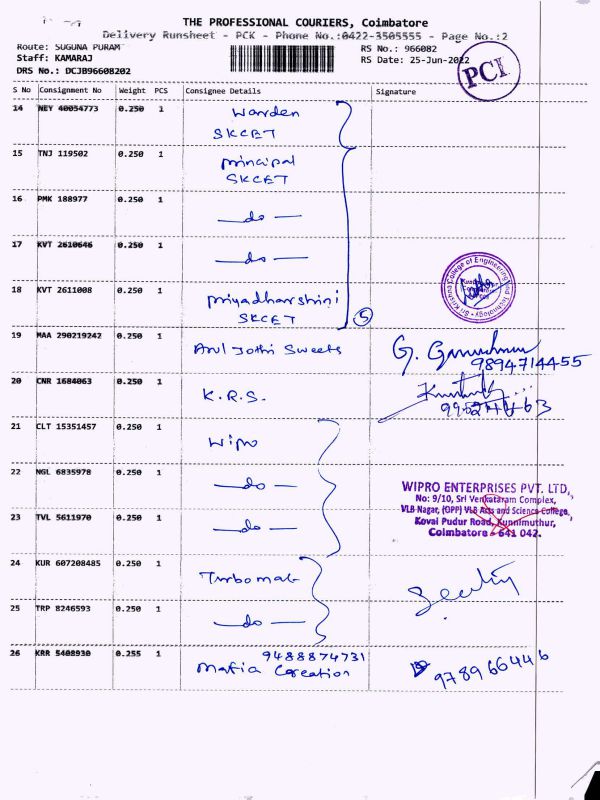 THE PROFESSIONAL COURIERS, Coimbatore
Delivery Runsheet - PCK - Phone No.:0422-3505555 - Page No.:2
Route: SUGUNA PURAM
RS No.: 966082
Staff: KAMARAJ
RS Date: 25-Jun-2022
DRS No.: DCJB96608202
PCI
S No Consignment No Weight PCS Consignee Details Signature
14 NEY 40054773 0.250 1 Warden
SKCET
15 TNJ 119502 0.250 1 Principal
SKCET
16 PMK 188977 0.250 1 —do—
17 KVT 2610646 0.250 1 —do—
18 KVT 2611008 0.250 1 Priyadharshini
SKCET
5
Sri Krishna College of Engineering and Technology
19 MAA 290219242 0.250 1 Arul Jothi Sweets
9894714455
20 CNR 1684063 0.250 1 K.R.S.
21 CLT 15351457 0.250 1 Wipro
22 NGL 6835978 0.250 1 —do—
23 TVL 5611970 0.250 1 —do—
WIPRO ENTERPRISES PVT. LTD,
No: 9/10, Sri Venkataram Complex,
VLB Nagar, (OPP) VLB Arts and Science College,
Kovai Pudur Road, Kunnimuthur,
Coimbatore - 641 042.
24 KUR 607208485 0.250 1 Turbomat
25 TRP 8246593 0.250 1 —do—
26 KRR 5408930 0.255 1 9488874731
Mafia Creation
9789664446